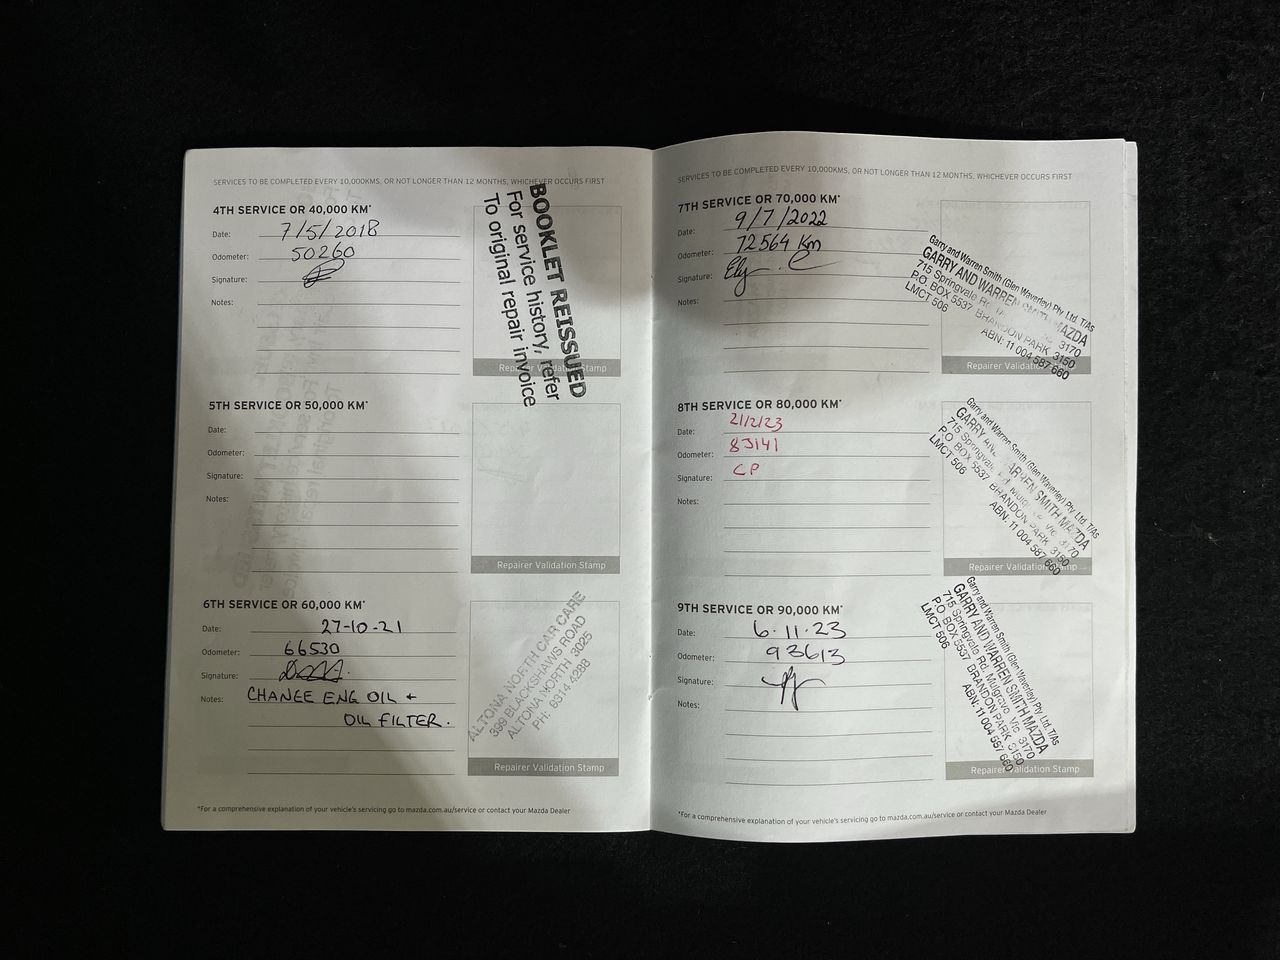 SERVICES TO BE COMPLETED EVERY 10,000KMS, OR NOT LONGER THAN 12 MONTHS, WHICHEVER OCCURS FIRST
4TH SERVICE OR 40,000 KM*
Date: 7/5/2018
Odometer: 50260
Signature:
Notes:
BOOKLET REISSUED
For service history, refer
To original repair invoice
Repairer Validation Stamp
5TH SERVICE OR 50,000 KM*
Date:
Odometer:
Signature:
Notes:
Repairer Validation Stamp
6TH SERVICE OR 60,000 KM*
Date: 27-10-21
Odometer: 66530
Signature:
Notes: CHANGE ENG OIL +
OIL FILTER.
ALTONA NORTH CAR CARE
399 BLACKSHAWS ROAD
ALTONA NORTH 3025
PH: 9314 4288
Repairer Validation Stamp
*For a comprehensive explanation of your vehicle's servicing go to mazda.com.au/service or contact your Mazda Dealer
SERVICES TO BE COMPLETED EVERY 10,000KMS, OR NOT LONGER THAN 12 MONTHS, WHICHEVER OCCURS FIRST
7TH SERVICE OR 70,000 KM*
Date: 9/7/2022
Odometer: 72564 Km
Signature:
Notes:
Garry and Warren Smith (Glen Waverley) Pty Ltd. T/As
GARRY AND WARREN SMITH MAZDA
715 Springvale Rd 3170
P.O. BOX 5537 BRANDON PARK 3150
LMCT 506 ABN: 11 004 587 660
Repairer Validation
8TH SERVICE OR 80,000 KM*
Date: 21/2/23
Odometer: 83141
Signature: CP
Notes:
Garry and Warren Smith (Glen Waverley) Pty Ltd. T/As
GARRY AND WARREN SMITH MAZDA
715 Springvale Rd Mulgrave Vic 3170
P.O. BOX 5537 BRANDON PARK 3150
LMCT 506 ABN: 11 004 587 660
Repairer Validation Stamp
9TH SERVICE OR 90,000 KM*
Date: 6.11.23
Odometer: 93613
Signature:
Notes:
Garry and Warren Smith (Glen Waverley) Pty Ltd. T/As
GARRY AND WARREN SMITH MAZDA
715 Springvale Rd Mulgrave Vic 3170
P.O. BOX 5537 BRANDON PARK 3150
LMCT 506 ABN: 11 004 587 660
Repairer Validation Stamp
*For a comprehensive explanation of your vehicle's servicing go to mazda.com.au/service or contact your Mazda Dealer